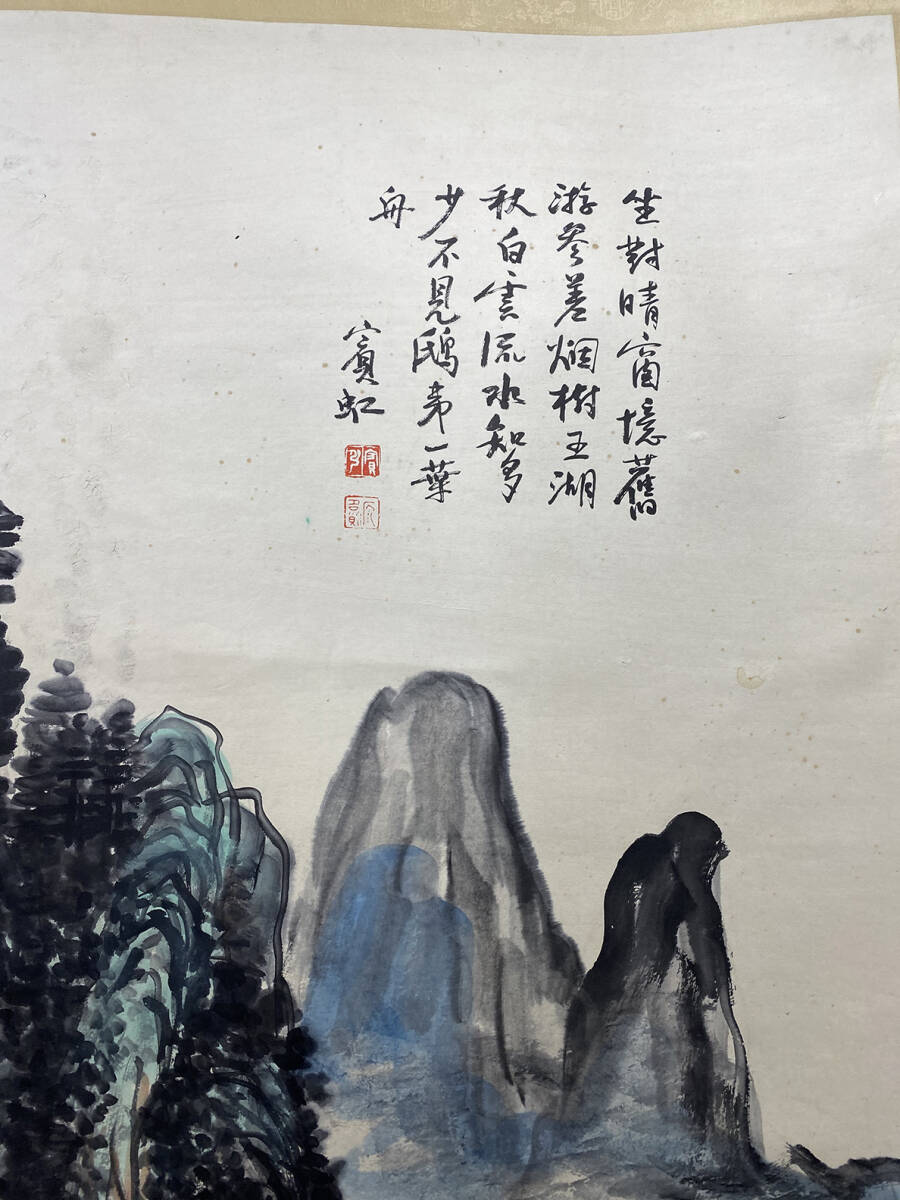 坐對晴窗憶舊
游參差烟樹五湖
秋白雲流水知多
少不見鴟夷一葉
舟
賓虹